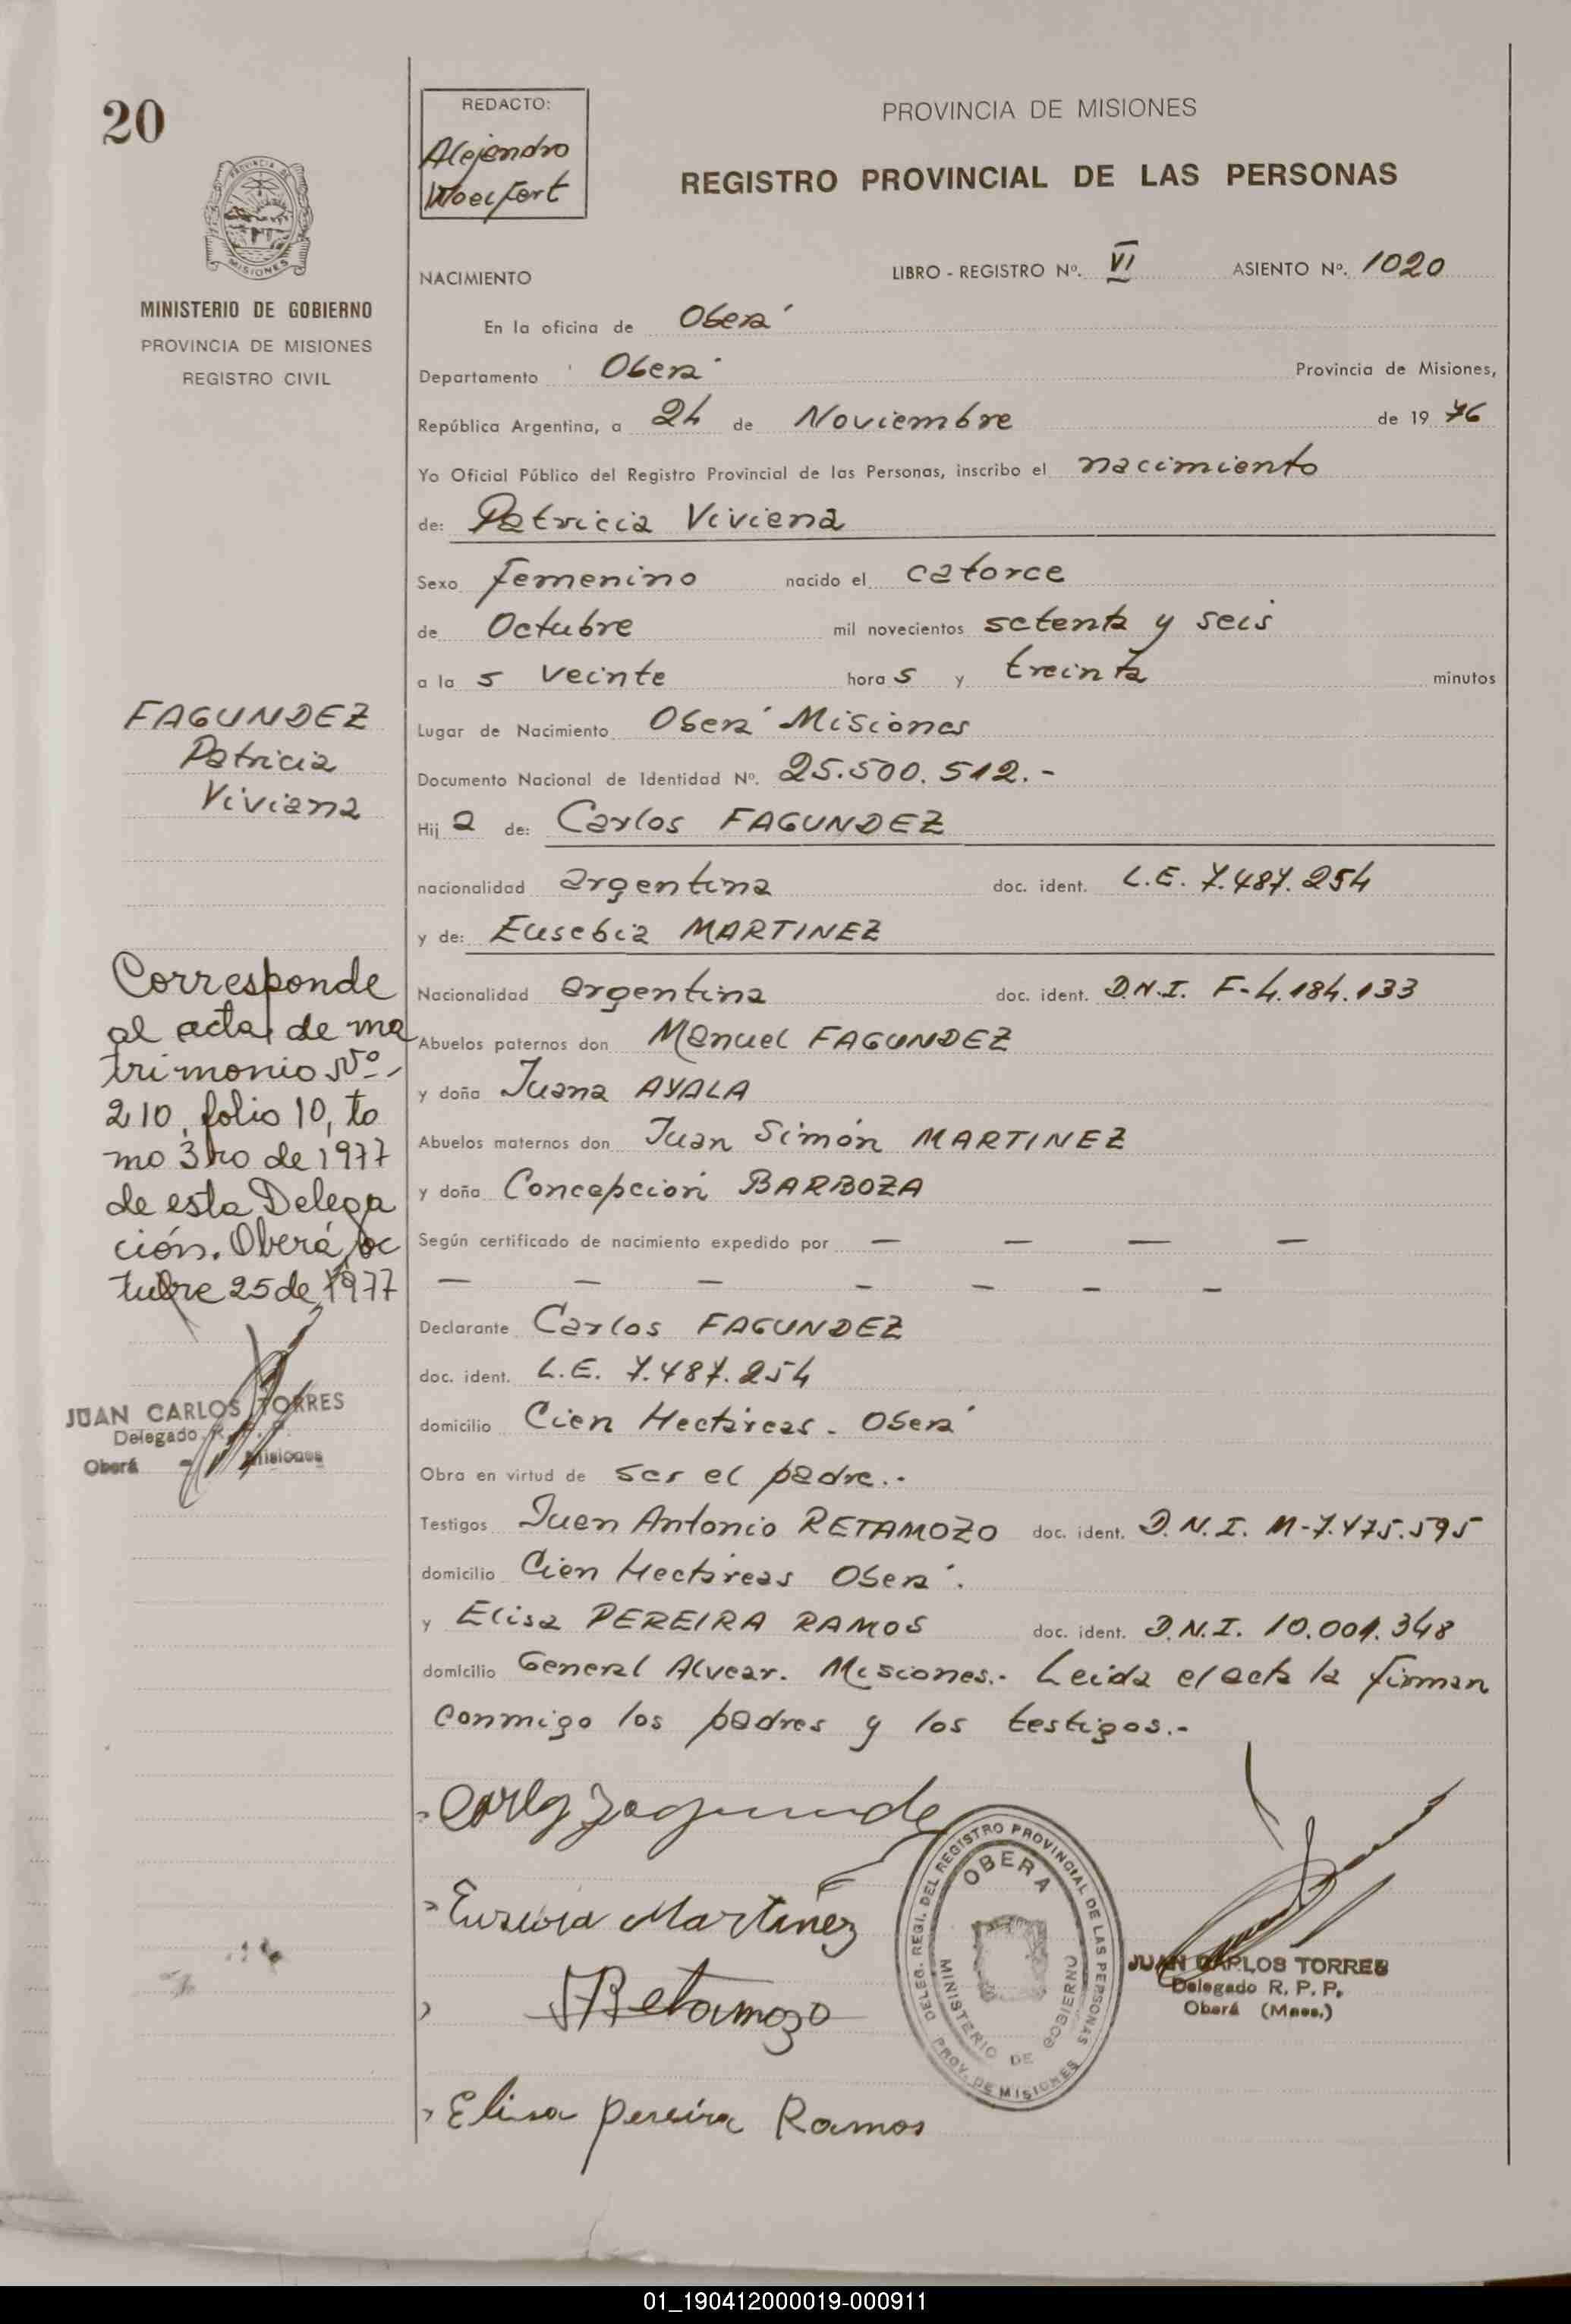 20
PROVINCIA DE
MISIONES
MINISTERIO DE GOBIERNO
PROVINCIA DE MISIONES
REGISTRO CIVIL
FAGUNDEZ
Patricia
Viviana
Corresponde
al acta de ma
trimonio Nº-
210, folio 10, to
mo 3ro de 1977
de esta Delega
ción. Oberá, oc
tubre 25 de 1977
JUAN CARLOS TORRES
Delegado R. P. P.
Oberá - Misiones
REDACTO:
Alejandro
PROVINCIA DE MISIONES
REGISTRO PROVINCIAL DE LAS PERSONAS
NACIMIENTO
LIBRO - REGISTRO Nº. VI ASIENTO Nº. 1020
En la oficina de Oberá
Departamento Oberá Provincia de Misiones,
República Argentina, a 24 de Noviembre de 19 76
Yo Oficial Público del Registro Provincial de las Personas, inscribo el nacimiento
de: Patricia Viviana
Sexo femenino nacido el catorce
de Octubre mil novecientos setenta y seis
a la s veinte hora s y treinta minutos
Lugar de Nacimiento Oberá Misiones
Documento Nacional de Identidad Nº. 25.500.512.-
Hij a de: Carlos FAGUNDEZ
nacionalidad argentina doc. ident. L.E. 7.487.254
y de: Eusebia MARTINEZ
Nacionalidad argentina doc. ident. D.N.I. F-4.184.133
Abuelos paternos don Manuel FAGUNDEZ
y doña Juana AYALA
Abuelos maternos don Juan Simón MARTINEZ
y doña Concepción BARBOZA
Según certificado de nacimiento expedido por — — — —
— — — — — — —
Declarante Carlos FAGUNDEZ
doc. ident. L.E. 7.487.254
domicilio Cien Hectáreas - Oberá
Obra en virtud de ser el padre.-
Testigos Juan Antonio RETAMOZO doc. ident. D.N.I. M-7.475.595
domicilio Cien Hectáreas Oberá.
y Elisa PEREIRA RAMOS doc. ident. D.N.I. 10.001.348
domicilio General Alvear. Misiones.- Leída el acta la firman
conmigo los padres y los testigos.-
Eusebia Martinez
Retamozo
Elisa pereira Ramos
DELEG. REGI. DEL REGISTRO PROVINCIAL DE LAS PERSONAS
OBERA
MINISTERIO DE GOBIERNO
PROV. DE MISIONES
JUAN CARLOS TORRES
Delegado R. P. P.
Oberá (Mnes.)
01_190412000019-000911